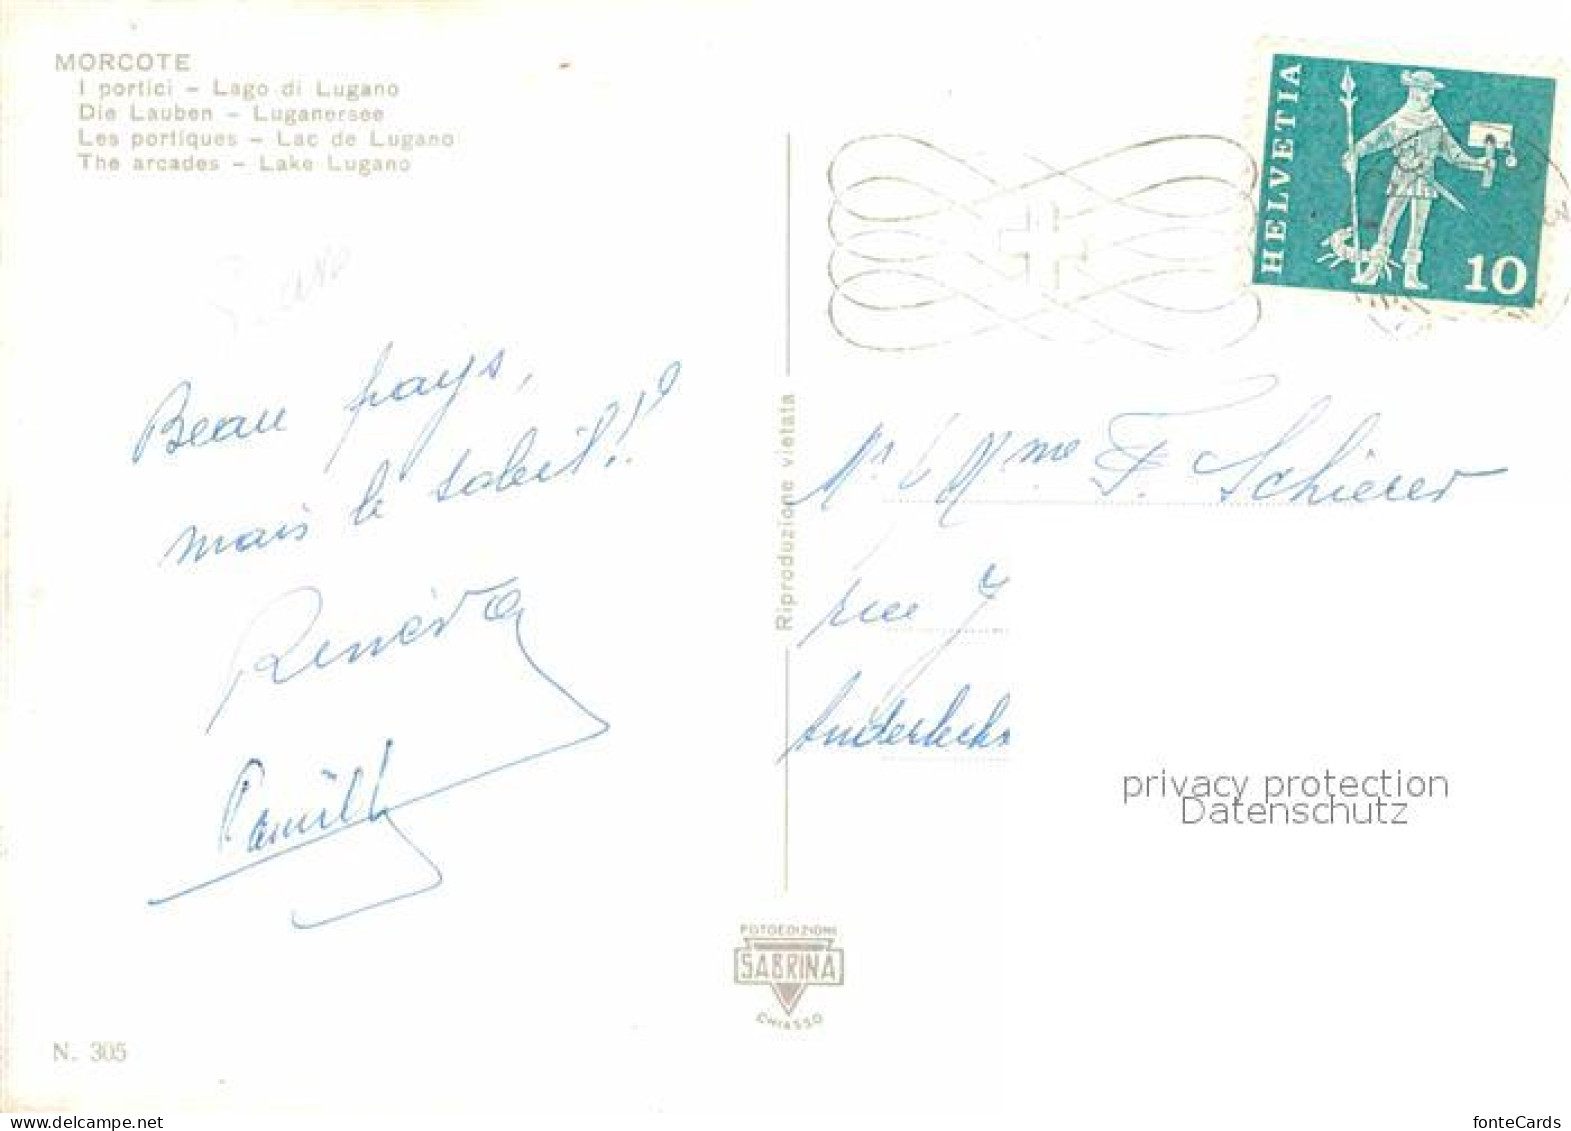 MORCOTE
I portici – Lago di Lugano
Die Lauben – Luganersee
Les portiques – Lac de Lugano
The arcades – Lake Lugano
HELVETIA
10
Beau pays,
mais le soleil!?
Riproduzione vietata
Mr & Mme F. Schierer
rue J
privacy protection
Datenschutz
FOTOEDIZIONI
SABRINA
CHIASSO
N. 305
www.delcampe.net
fonteCards